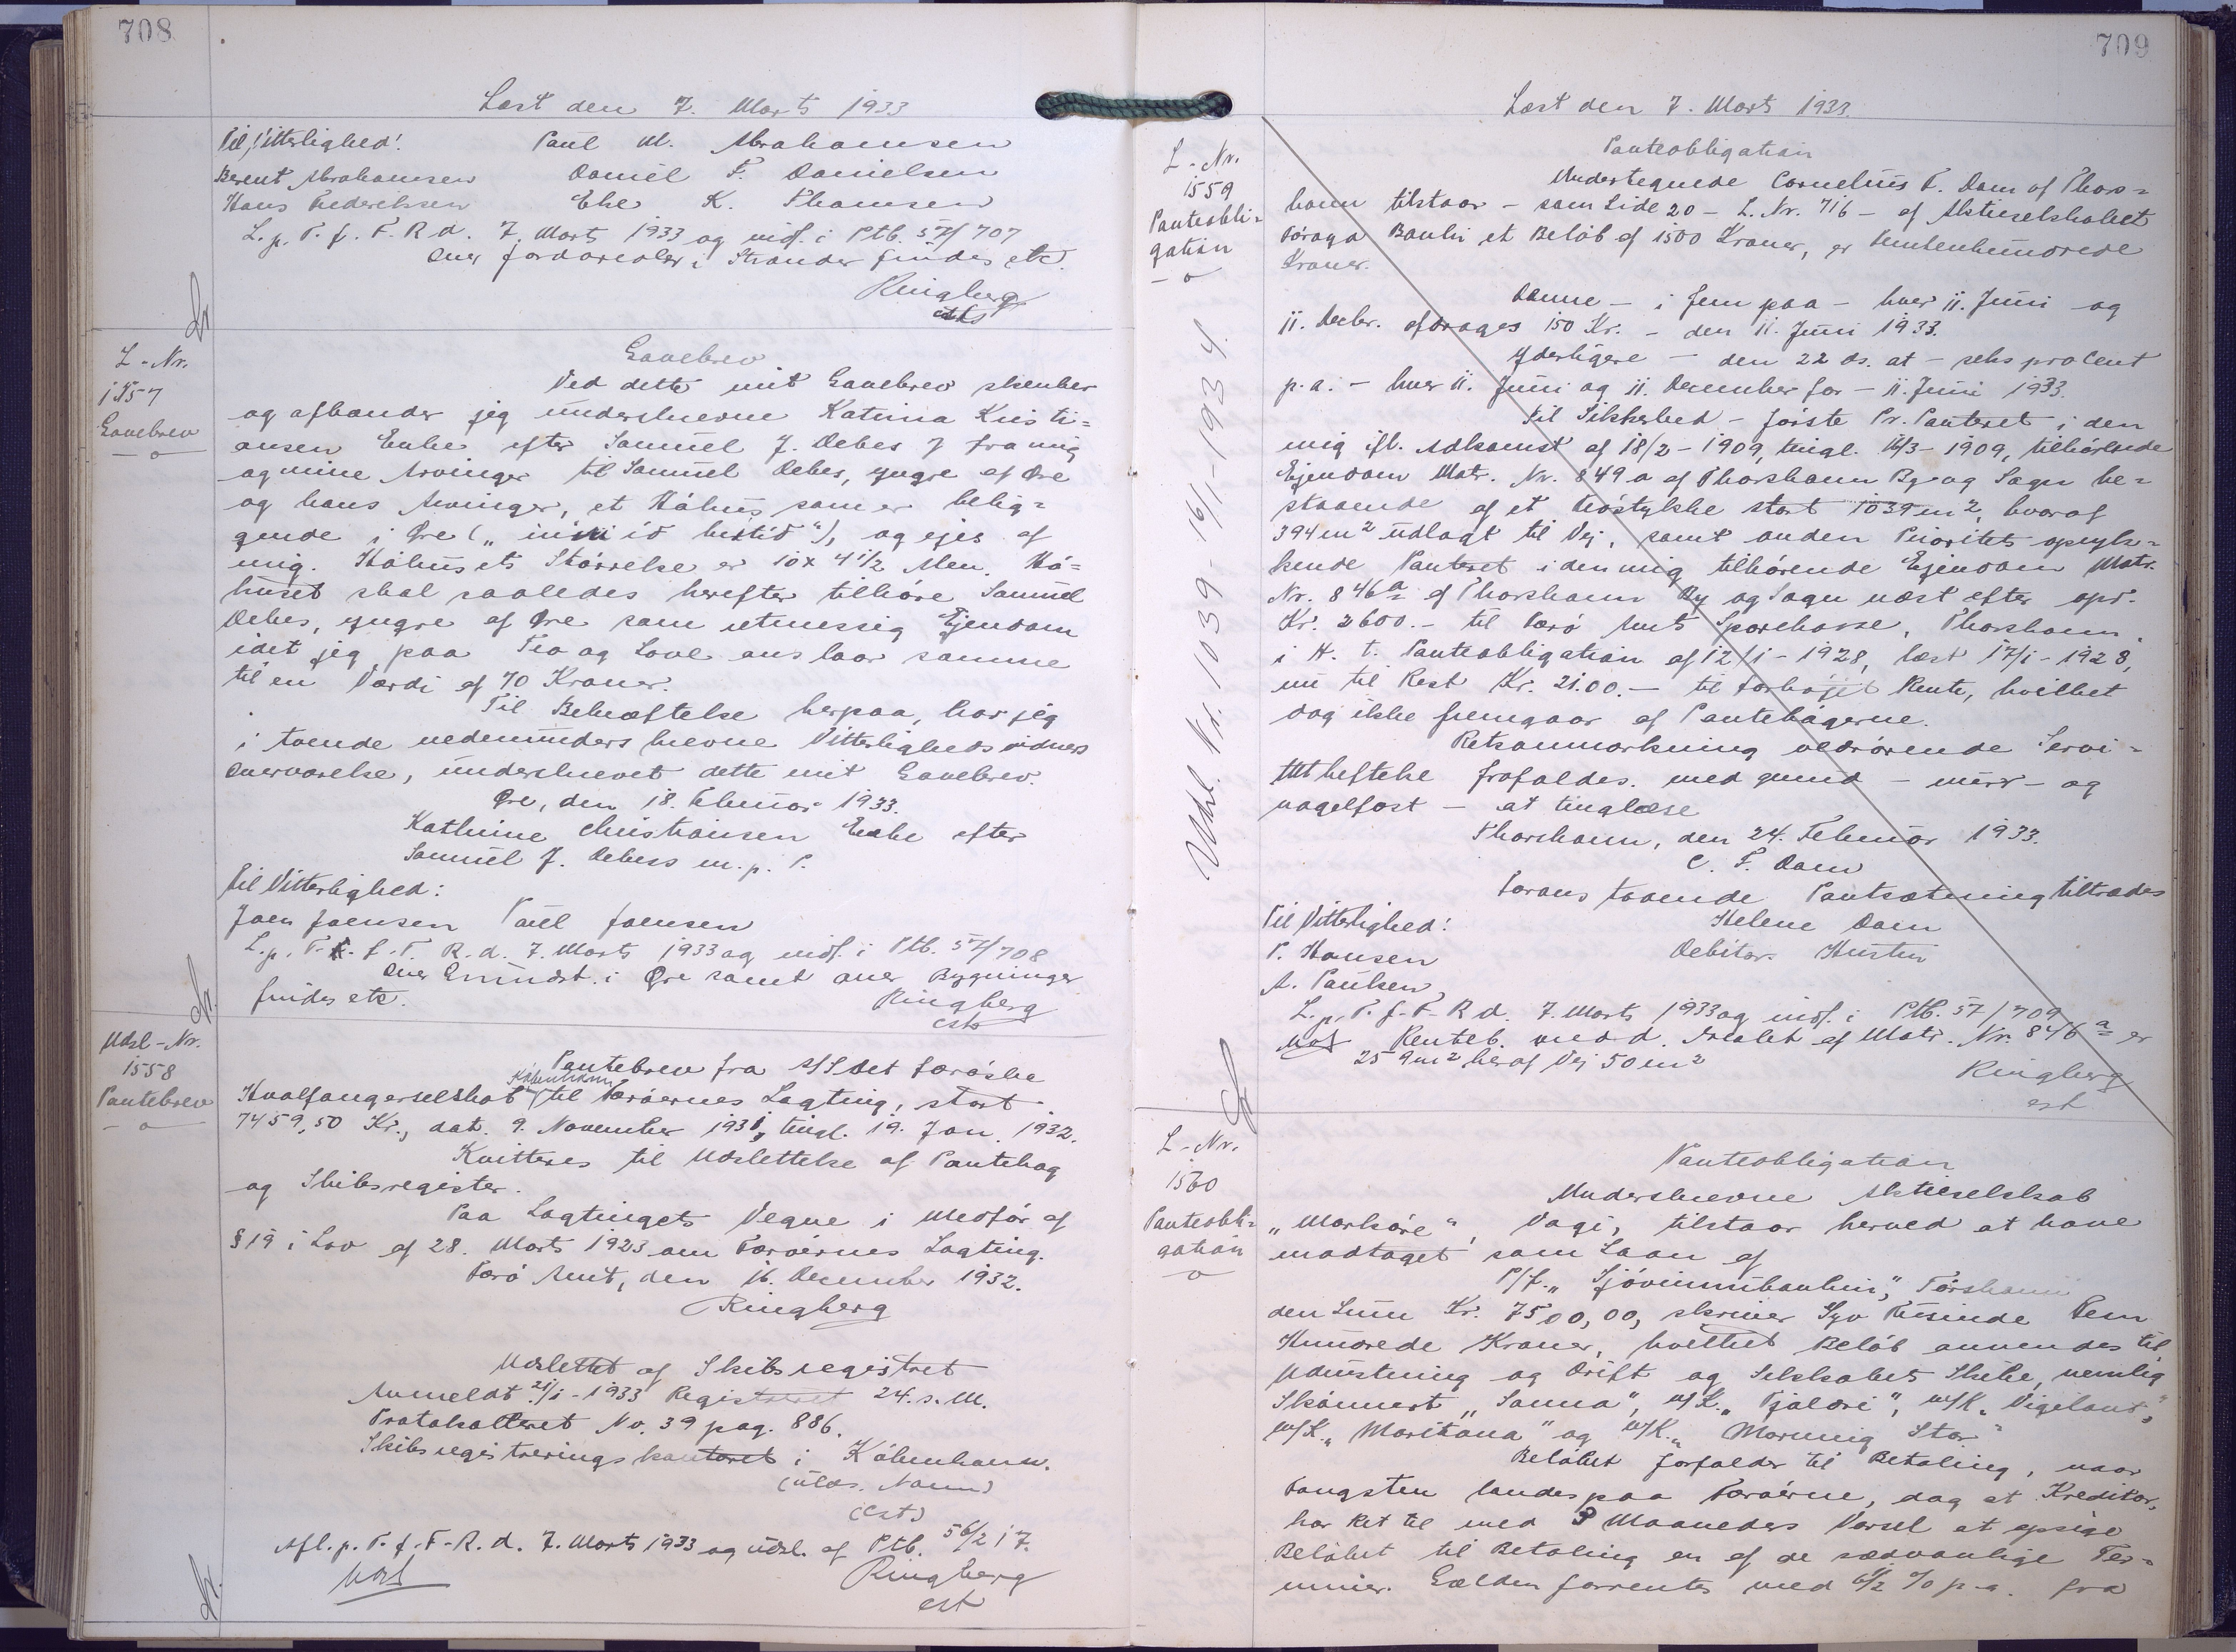 708
Læst den 7. Marts 1933
Til Vitterlighed! Paul M. Abrahamsen
Berent Abrahamsen Daniel F. Danielsen
Hans Frederiksen Elie K. Thomsen
L. p. T. f. F. R d. 7. Marts 1933 og indf. i Ptb. 57/707
Over Jordarealer i Strander findes etc.
Ringberg
cst
L-Nr.
1557
Gavebrev
Gavebrev
Ved dette mit Gavebrev skenker
og afhænder jeg underskrevne Katrina Kristi=
ansen Enke efter Samuel J. Debes J fra mig
og mine Arvinger til Samuel Debes, yngre af Øre
og hans Arvinger, et Háhus som er belig=
gende i Øre („ inni ið ), og ejes af
mig. Háhusets Størrelse er 10 x 4 1/2 Alen. Há=
huset skal saaledes herefter tilhøre Samuel
Debes, yngre af Øre som retmessig Ejendom
idet jeg paa Tro og Love anslaar samme
til en Værdi af 70 Kroner.
Til Bekræftelse herpaa, har jeg
i tvende nedenunderskrevne Vitterlighedsvidners
Overværelse, underskrevet dette mit Gavebrev.
Øre, den 18. Februar 1933.
Kathrine Christiansen Enke efter
Samuel J. Debess m. p. P.
Til Vitterlighed:
Joen Joensen Paul Joensen
L. p. T. f. F. R. d. 7. Marts 1933 og indf. i Ptb. 57/708
Over Grundst. i Øre samt over Bygninger
findes etc. Ringberg
cst
Udsl-Nr.
1558
Pantebrev
Pantebrev fra A/S Det færøske
København
Hvalfangerselskab til Færøernes Lagting, stort
7459,50 Kr., dat. 9. November 1931, tingl. 19. Jan. 1932.
Kvitteres til Udslettelse af Pantebog
og Skibsregister.
Paa Lagtingets Vegne i Medfør af
§ 19 i Lov af 28. Marts 1923 om Færøernes Lagting.
Færø Amt, den 16. December 1932.
Ringberg
Udslettet af Skibsregistret
Anmeldt 21/1-1933 Registreret 24. s. M.
Protokolleret No. 39 pag. 886.
Skibsregistreringskontoret i København.
(ulæs. Navn)
(cst)
Afl. p. T. f. F. R. d. 7. Marts 1933 og udsl. af Ptb. 56/217.
Udsl Ringberg
cst
709
Læst den 7. Marts 1933.
L-Nr.
1559
Panteobli=
gation
Udsl. Nr. 1039- 16/1-1934.
Panteobligation
Undertegnede Cornelius F. Dam af Thors=
havn tilstaar - som Side 20 - L. Nr. 716 - af Aktieselskabet
Føroya Banki et Beløb af 1500 Kroner, er Femtenhundrede
Kroner.
Denne - i Jem paa - hver 11. Juni og
11. Decbr. afdrages 150 Kr. - den 11. Juni 1933.
Yderligere - den 22 ds. at - seks pro Cent
p. a. - hver 11. Juni og 11. December for - 11. Juni 1933.
Til Sikkerhed - første Pr. Panteret i den
mig ifl. Adkomst af 18/2-1909, tingl. 16/3-1909, tilhørende
Ejendom Matr. Nr. 849 a af Thorshavn By og Sogn be=
staaende af et Trøstykke stort 1039 m², hvoraf
394 m² udlagt til Vej, samt anden Prioritets opryk=
kende Panteret i den mig tilhørende Ejendom Matr.
Nr. 846 a af Thorshavn By og Sogn næst efter opr.
Kr. 2600.- til Færø Amts Sparekasse, Thorshavn,
i H. t. Panteobligation af 12/1-1928, læst 17/1-1928,
nu til Rest Kr. 21.00.- til forhøjet Rente, hvilket
dog ikke fremgaar af Pantebøgerne.
Retsanmærkning vedrørende Servi=
tuthæftelse frafaldes. med grund - mur - og
nagelfast - at tinglæse
Thorshavn, den 24. Februar 1933.
C. F. Dam
Foranstaaende Pantsætning tiltrædes
Til Vitterlighed! Helene Dam
P. Hansen Debitors Hustru
A. Paulsen
L. p. T. f. F. R d. 7. Marts 1933 og indf. i Ptb. 57/709
Udsl Renteb. med d. Arealet af Matr. Nr. 846 a er
259 m² heraf Vej 50 m²
Ringberg
cst
L-Nr.
1560
Panteobli=
gation
Panteobligation
Underskrevne Aktieselskab
„Marknøre“, Vagi, tilstaar herved at have
modtaget som Laan af
P/f. „Sjóvinnubankin“, Tórshavn
den Sum Kr. 7500,00, skriver Syv Tusinde Fem
Hundrede Kroner, hvilket Beløb anvendes til
Udrustning og Drift og Selskabets Skibe, nemlig
Skonnert „Sanna“, M/K. „Tjaldri“, M/K „Vigilant“,
M/K. „Maritana“ og M/K. „Morning Star“
Beløbet forfalder til Betaling, naar
Fangsten landes paa Færøerne, dog at Kreditor,
har Ret til med 3 Maaneders Varsel at opsige
Beløbet til Betaling en af de sædvanlige Ter=
miner. Gælden forrentes med 6 1/2 % p.a. fra